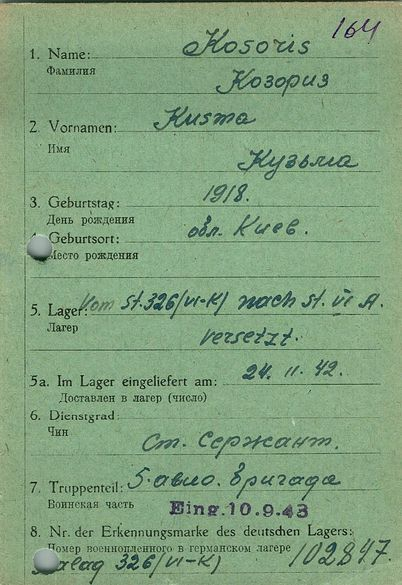 164
1. Name: Kosoris
Фамилия
Козориз
2. Vornamen: Kusma
Имя
Кузьма
3. Geburtstag: 1918.
День рождения
4. Geburtsort: обл. Киев.
Место рождения
5. Lager: Vom St. 326/VI-K) nach St. VI A.
Лагерь
versetzt.
5a. Im Lager eingeliefert am: 24. 11. 42.
Доставлен в лагер (число)
6. Dienstgrad:
Чин
Ст. Сержант.
7. Truppenteil: 5-авио. Бригада
Воинская часть
Eing. 10.9.43
8. Nr. der Erkennungsmarke des deutschen Lagers:
Номер военнопленного в германском лагере 102847.
Stalag 326/VI-K)